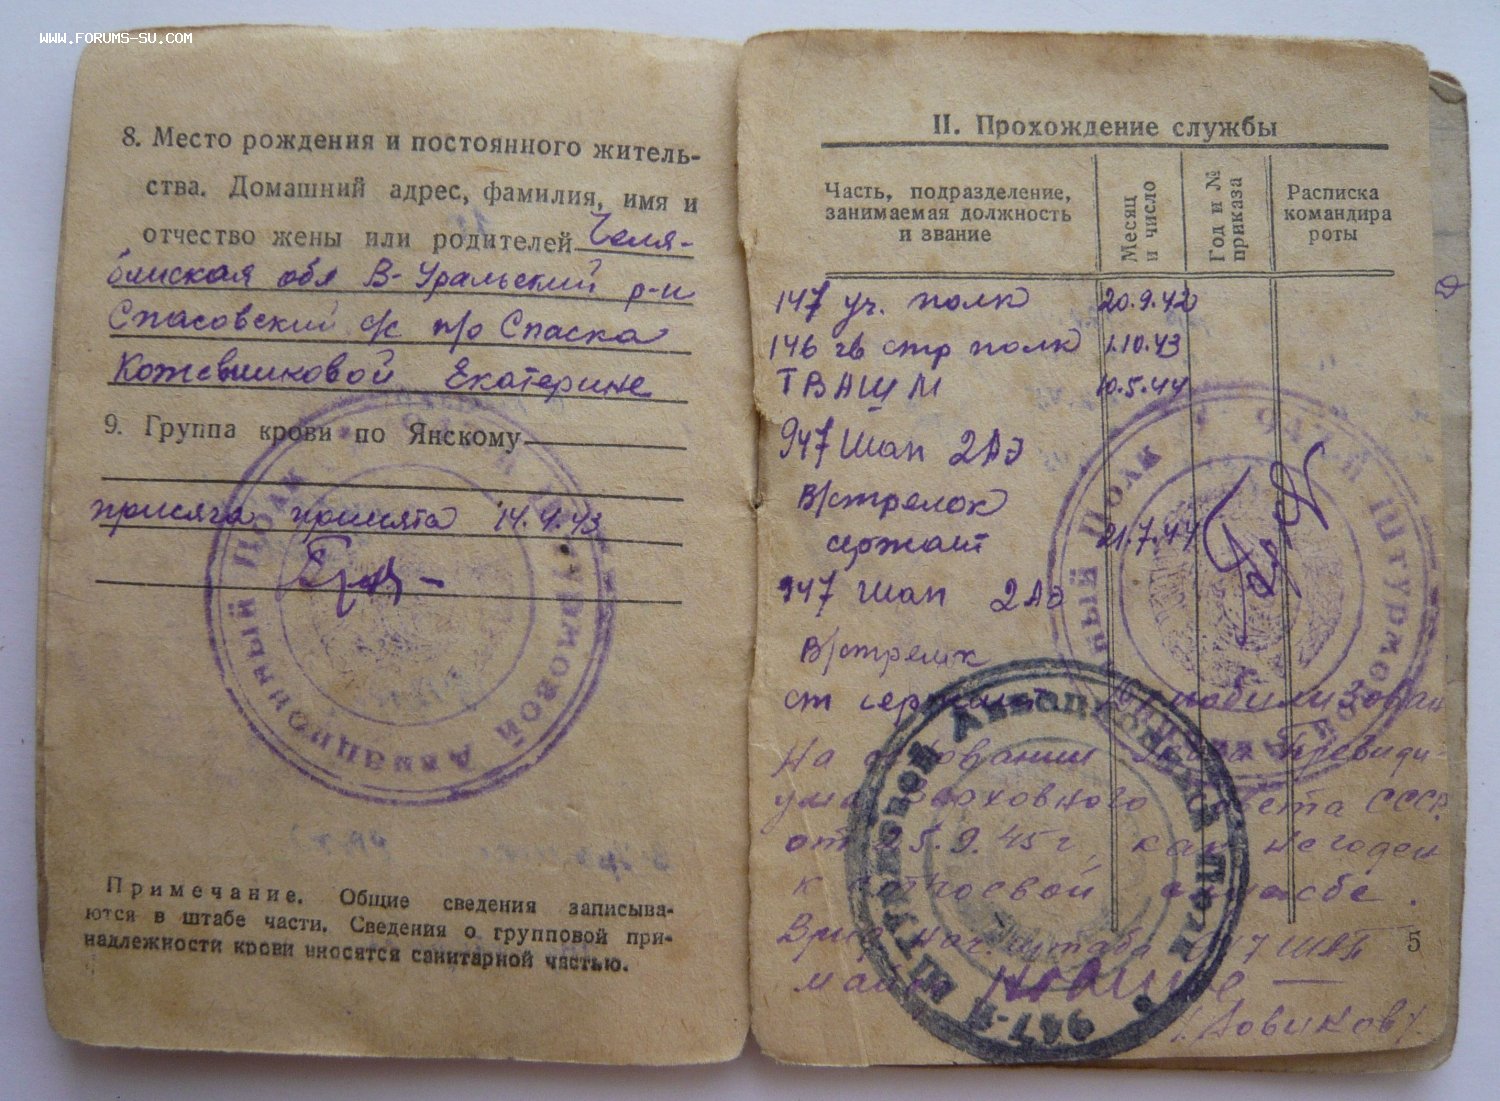 WWW.FORUMS-SU.COM
8. Место рождения и постоянного житель-
ства. Домашний адрес, фамилия, имя и
отчество жены или родителей Челя-
бинская обл В-Уральский р-н
Спасовский с/с п/о Спаска
Кожевниковой Екатерине
9. Группа крови по Янскому
присяга принята 14.1.43
Примечание. Общие сведения записыва-
ются в штабе части. Сведения о групповой при-
надлежности крови вносятся санитарной частью.
II. Прохождение службы
Часть, подразделение,
занимаемая должность
и звание
Месяц
и число
Год и №
приказа
Расписка
командира
роты
147 уч. полк 20.9.42
146 гв стр полк 1.10.43
ТВАШМ 10.5.44
947 Шап 2АЭ
В/стрелок
сержант 21.7.44
947 Шап 2АЭ
В/стрелок
ст сержант Демобилизован
На основании Указа Президи-
ума Верховного Совета СССР
от 25.9.45 г, как не годен
к строевой службе.
Врид нач. штаба 947 ШАП
майор
(Новиков)
5
947-й Штурмовой Авиационный Полк
947-й Штурмовой Авиационный Полк
947-й Штурмовой Авиационный Полк